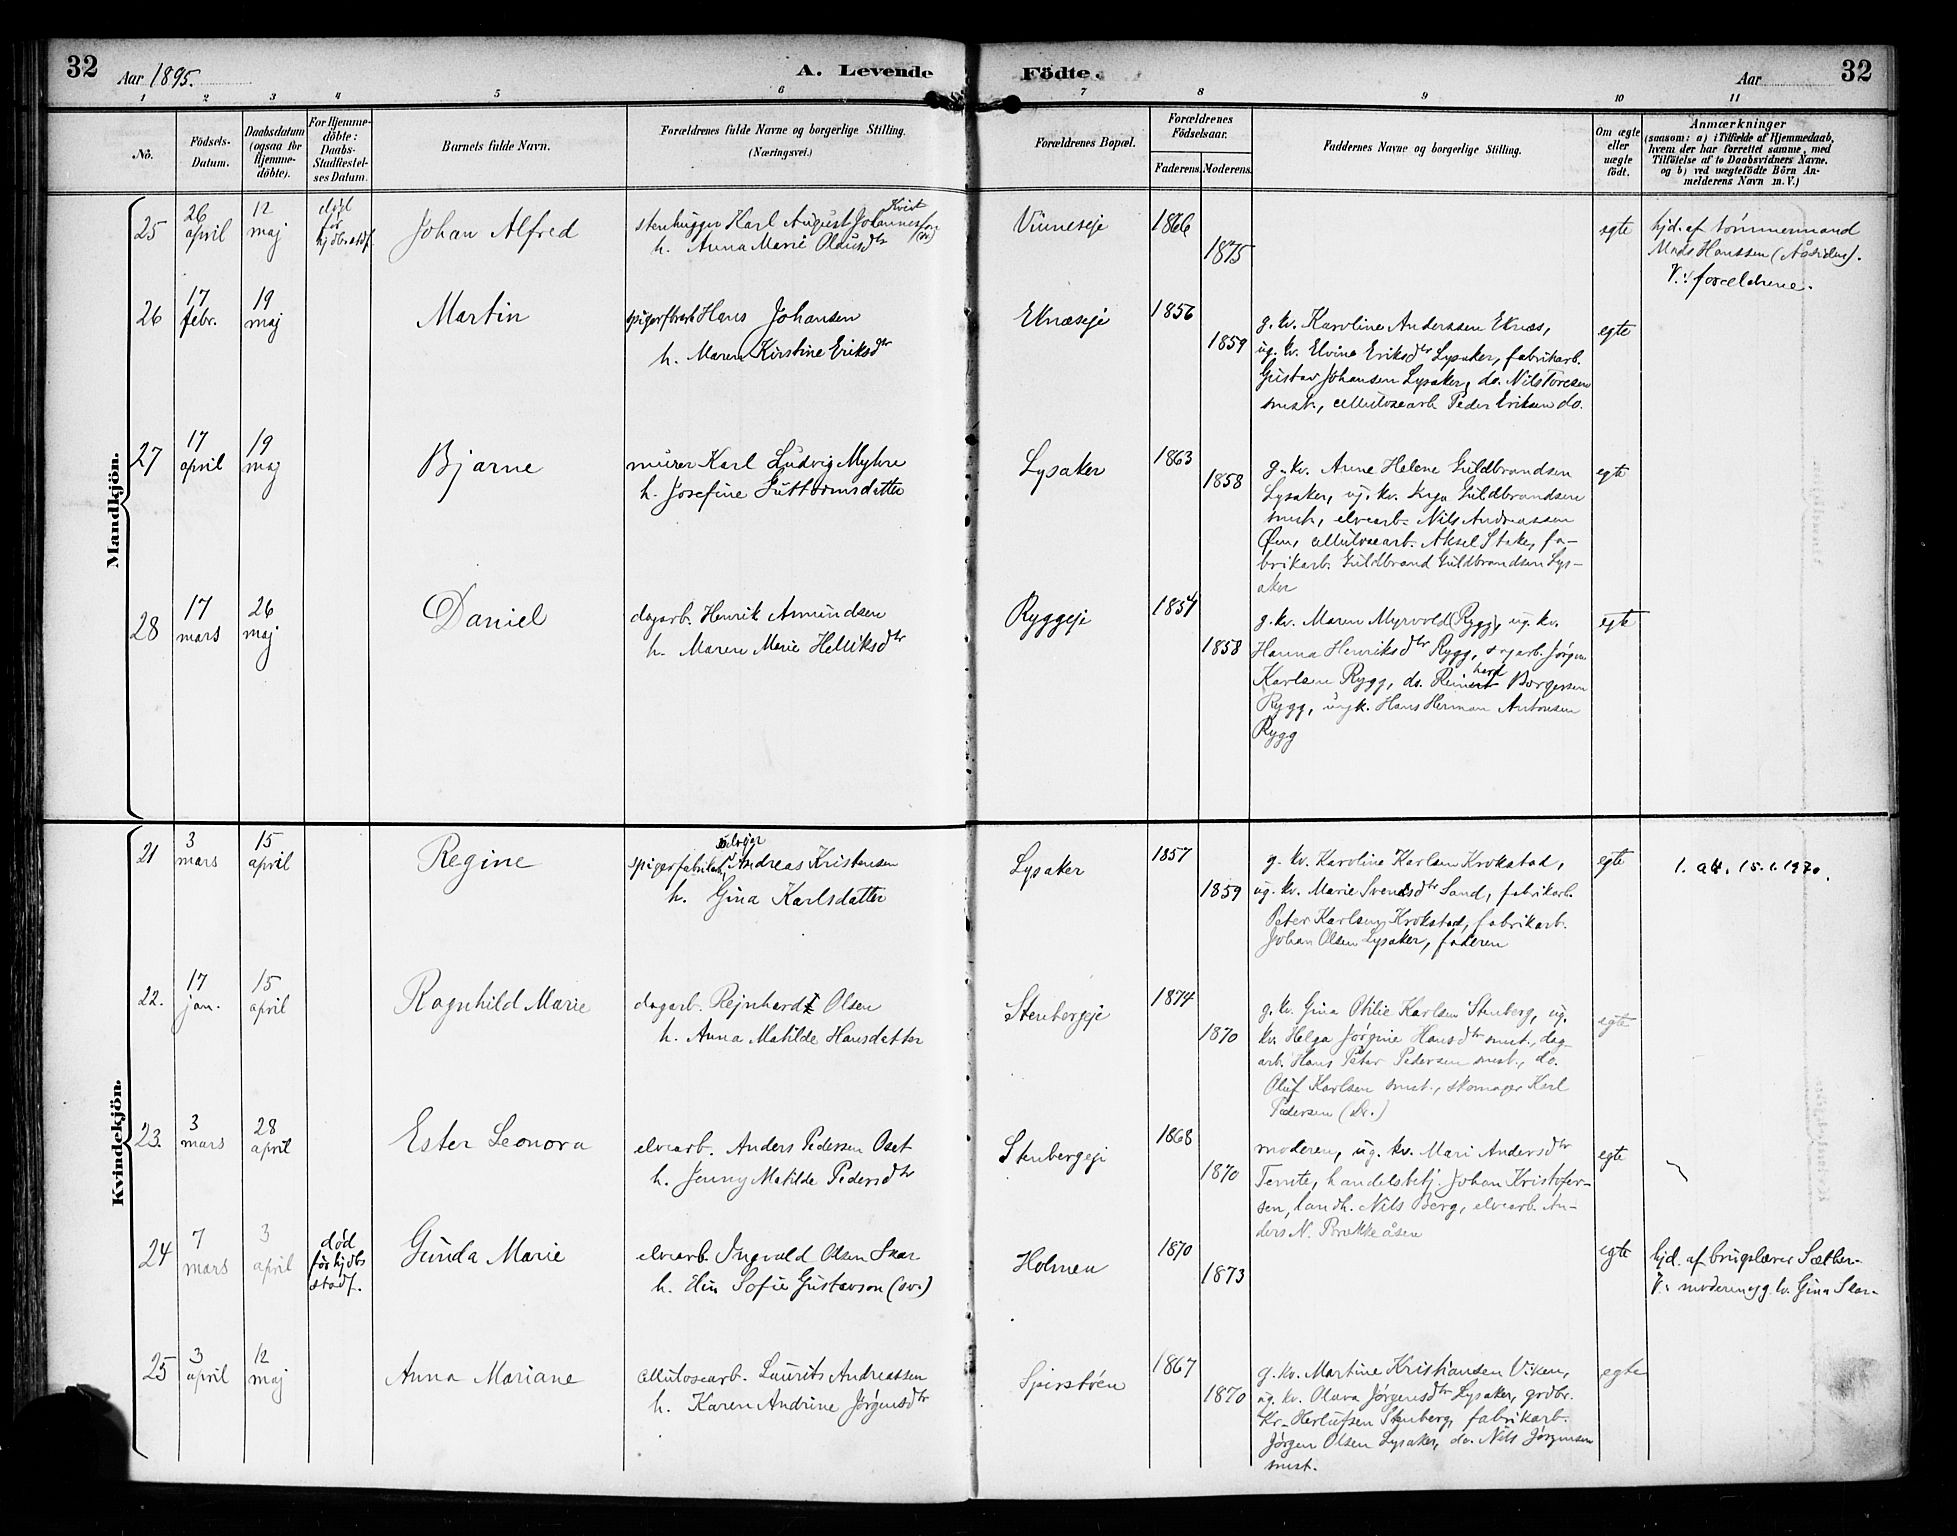 32
Aar 1895.
A. Levende
Födte.
Aar
32
1 2 3 4 5 6 7 8 9 10 11
No.
Födsels-
Datum.
Daabsdatum
(ogsaa for
Hjemme-
döbte).
For Hjemme-
döbte:
Daabs-
Stadfæstel-
ses Datum.
Barnets fulde Navn.
Forældrenes fulde Navne og borgerlige Stilling.
(Næringsvei.)
Forældrenes Bopæl.
Forældrenes
Födselsaar.
Faderens. Moderens.
Faddernes Navne og borgerlige Stilling.
Om ægte
eller
uægte
födt.
Anmærkninger
(saasom: a) i Tilfælde af Hjemmedaab,
hvem der har forrettet samme, med
Tilföielse af to Daabsvidners Navne.
og b) ved uægtefödte Börn An-
melderens Navn m. V.)
Mandkjön.
25
26 april
12 maj
før
Johan Alfred
Kvist
stenhugger Karl August Johannesson
h. Anna Marie Olausdtr
Vinneseje
1866
1875
egte
hjd. af tømmermand
Mads Hanssen (Åsiden).
V.: forældrene.
26
17 febr.
19 maj
Martin
Hans Johansen
h. Maren Kirstine Eriksdtr
Eknæseje
1856
1859
g. kv. Karoline Anderssen Eknæs,
ug. kv. Elvina Eriksdtr Lysaker, fabrikarb.
Gustav Johansen Lysaker, do. Nils Toresen
smst., cellulosearb Peder Eriksen do.
egte
27
17 april
19 maj
Bjarne
murer Karl Ludvig Myhre
h. Josefine Guttormsdatter
Lysaker
1863
1858
g. kv. Anne Helene Guldbrandsen
Lysaker, ug. kv. Inga Guldbrandsen
smst., elvearb. Nils Andreassen
Øen, cellulosearb. Aksel Stake, fa-
brikarb. Guldbrand Guldbrandsen Lys-
aker
egte
28
17 mars
26 maj
Daniel
dagarb. Henrik Amundsen
h. Maren Marie Helliksdtr
Ryggeje
1854
1858
g. kv. Maren Myrvold (Rygg), ug. kv.
Hanna Henriksdtr Rygg, dagarb. Jørgen
Karlsen Rygg, do. Reinhard Borgersen
Rygg, ungk. Hans Herman Antonsen
Rygg
egte
Kvindekjön.
21
3 mars
15 april
Regine
Andreas Kristensen
h. Gina Karlsdatter
Lysaker
1857
1859
g. kv. Karoline Karlsen Krokstad,
ug. kv. Marie Svendsdtr Sand, fabrikarb.
Peter Karlsen Krokstad, fabrikarb.
Johan Olsen Lysaker, faderen
egte
1. att. 15.1.1970.
22.
17 jan.
15 april
Ragnhild Marie
dagarb. Rejnhardt Olsen
h. Anna Matilde Hansdatter
Stenbergeje
1874
1870
g. kv. Gina Otilie Karlsen Stenberg, ug.
kv. Helga Jørgine Hansdtr smst., dag-
arb. Hans Peter Pedersen smst., do.
Oluf Karlsen smst., skomager Karl
Pedersen (Dr.)
egte
23.
3 mars
28 april
Ester Leonora
elvearb. Anders Pedersen Oset
h. Jenny Matilde Pedersdtr
Stenbergeje
1868
1870
moderen, ug. kv. Mari Andersdtr
Temte, handelsbetj. Johan Kristofer-
sen, landh. Nils Berg, elvearb. An-
ders N. Brekkeåsen
egte
24
7 mars
3 april
død
før hjdbs
stadf.
Gunda Marie
elvearb. Ingvald Olsen Skar
h. Elin Sofie Gustavson (sv.)
Holmen
1870
1873
egte
hjd. af brugslærer Sæther.
V.: moderen og g. kv. Gina Skar.
25
3 april
12 maj
Anna Mariane
cellulosearb. Laurits Andreassen
h. Karen Andrine Jørgensdtr
Spirstøen
1867
1870
g. kv. Martine Kristiansen Viken,
ug. kv. Olava Jørgensdtr Lysaker, grdbr.
Kr. Herlufsen Stenberg, fabrikarb.
Jørgen Olsen Lysaker, do. Nils Jørgensen
smst.
egte